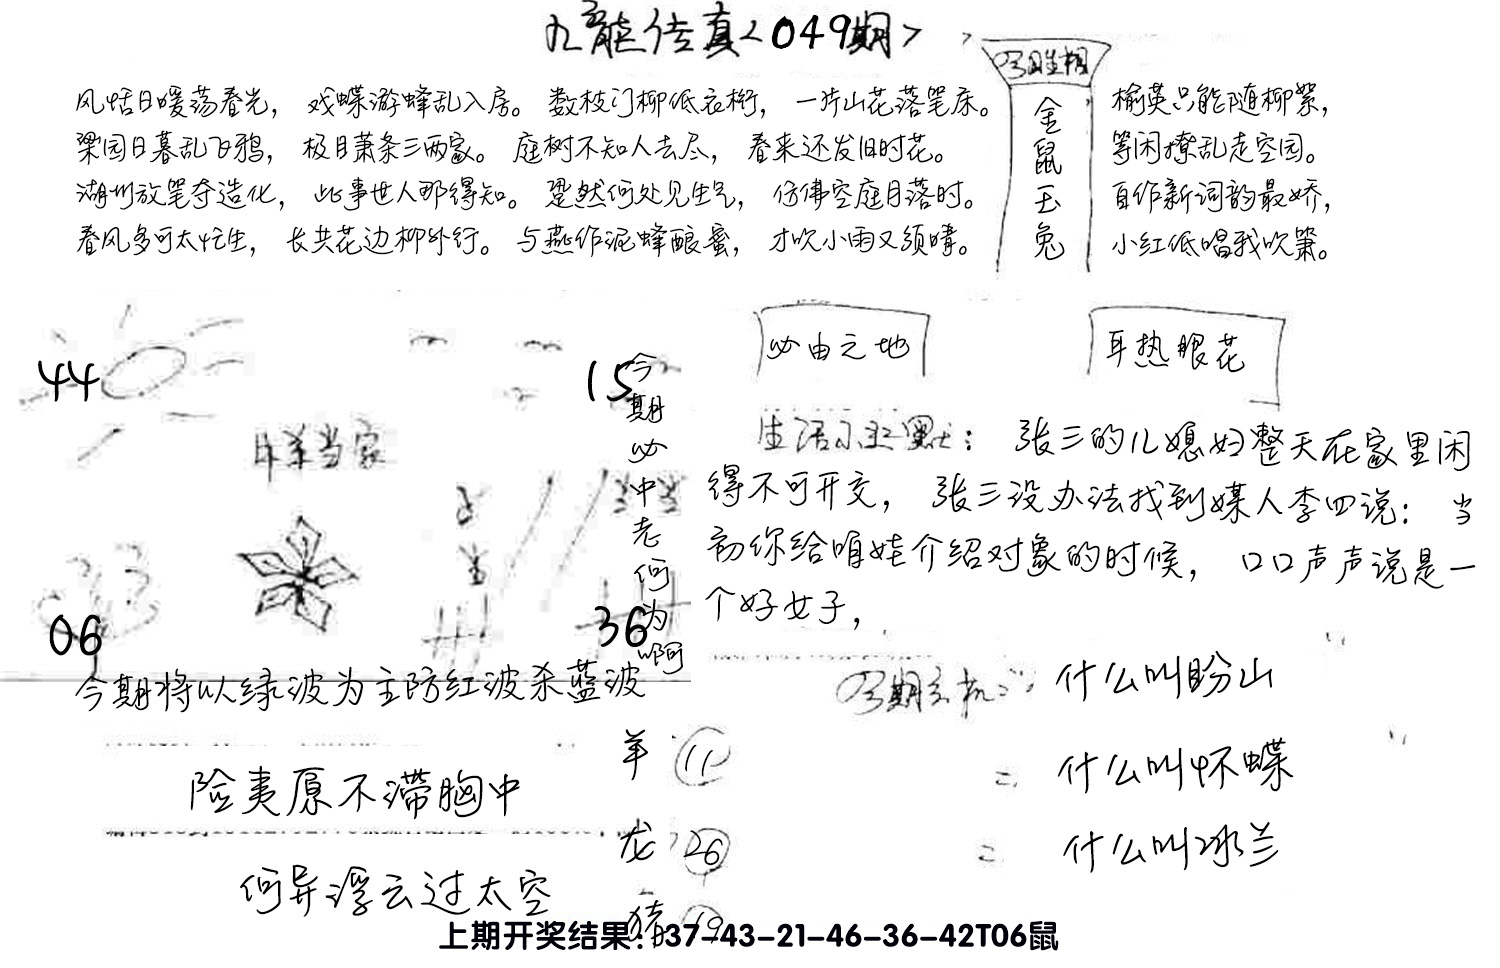 九龙传真<049期>
今期生相
金鼠玉兔
风恬日暖荡春光， 戏蝶游蜂乱入房。 数枝门柳低衣桁， 一片山花落笔床。
梁园日暮乱飞鸦， 极目萧条三两家。 庭树不知人去尽， 春来还发旧时花。
湖州放笔夺造化， 此事世人那得知。 跫然何处见生气， 仿佛空庭月落时。
春风多可太忙生， 长共花边柳外行。 与燕作泥蜂酿蜜， 才吹小雨又须晴。
榆荚只能随柳絮，
等闲撩乱走空园。
自作新词韵最娇，
小红低唱我吹箫。
44
15
当家
06
36
今期必中老何为啊
今期将以绿波为主防红波杀蓝波
必由之地
耳热眼花
生活幽默： 张三的儿媳妇整天在家里闲
得不可开交， 张三没办法找到媒人李四说： 当
初你给咱娃介绍对象的时候， 口口声声说是一
个好女子，
险夷原不滞胸中
何异浮云过太空
羊 11
龙 26
猪 19
今期玄机 一: 什么叫盼山
二 什么叫怀蝶
二 什么叫冰兰
上期开奖结果：37-43-21-46-36-42T06鼠